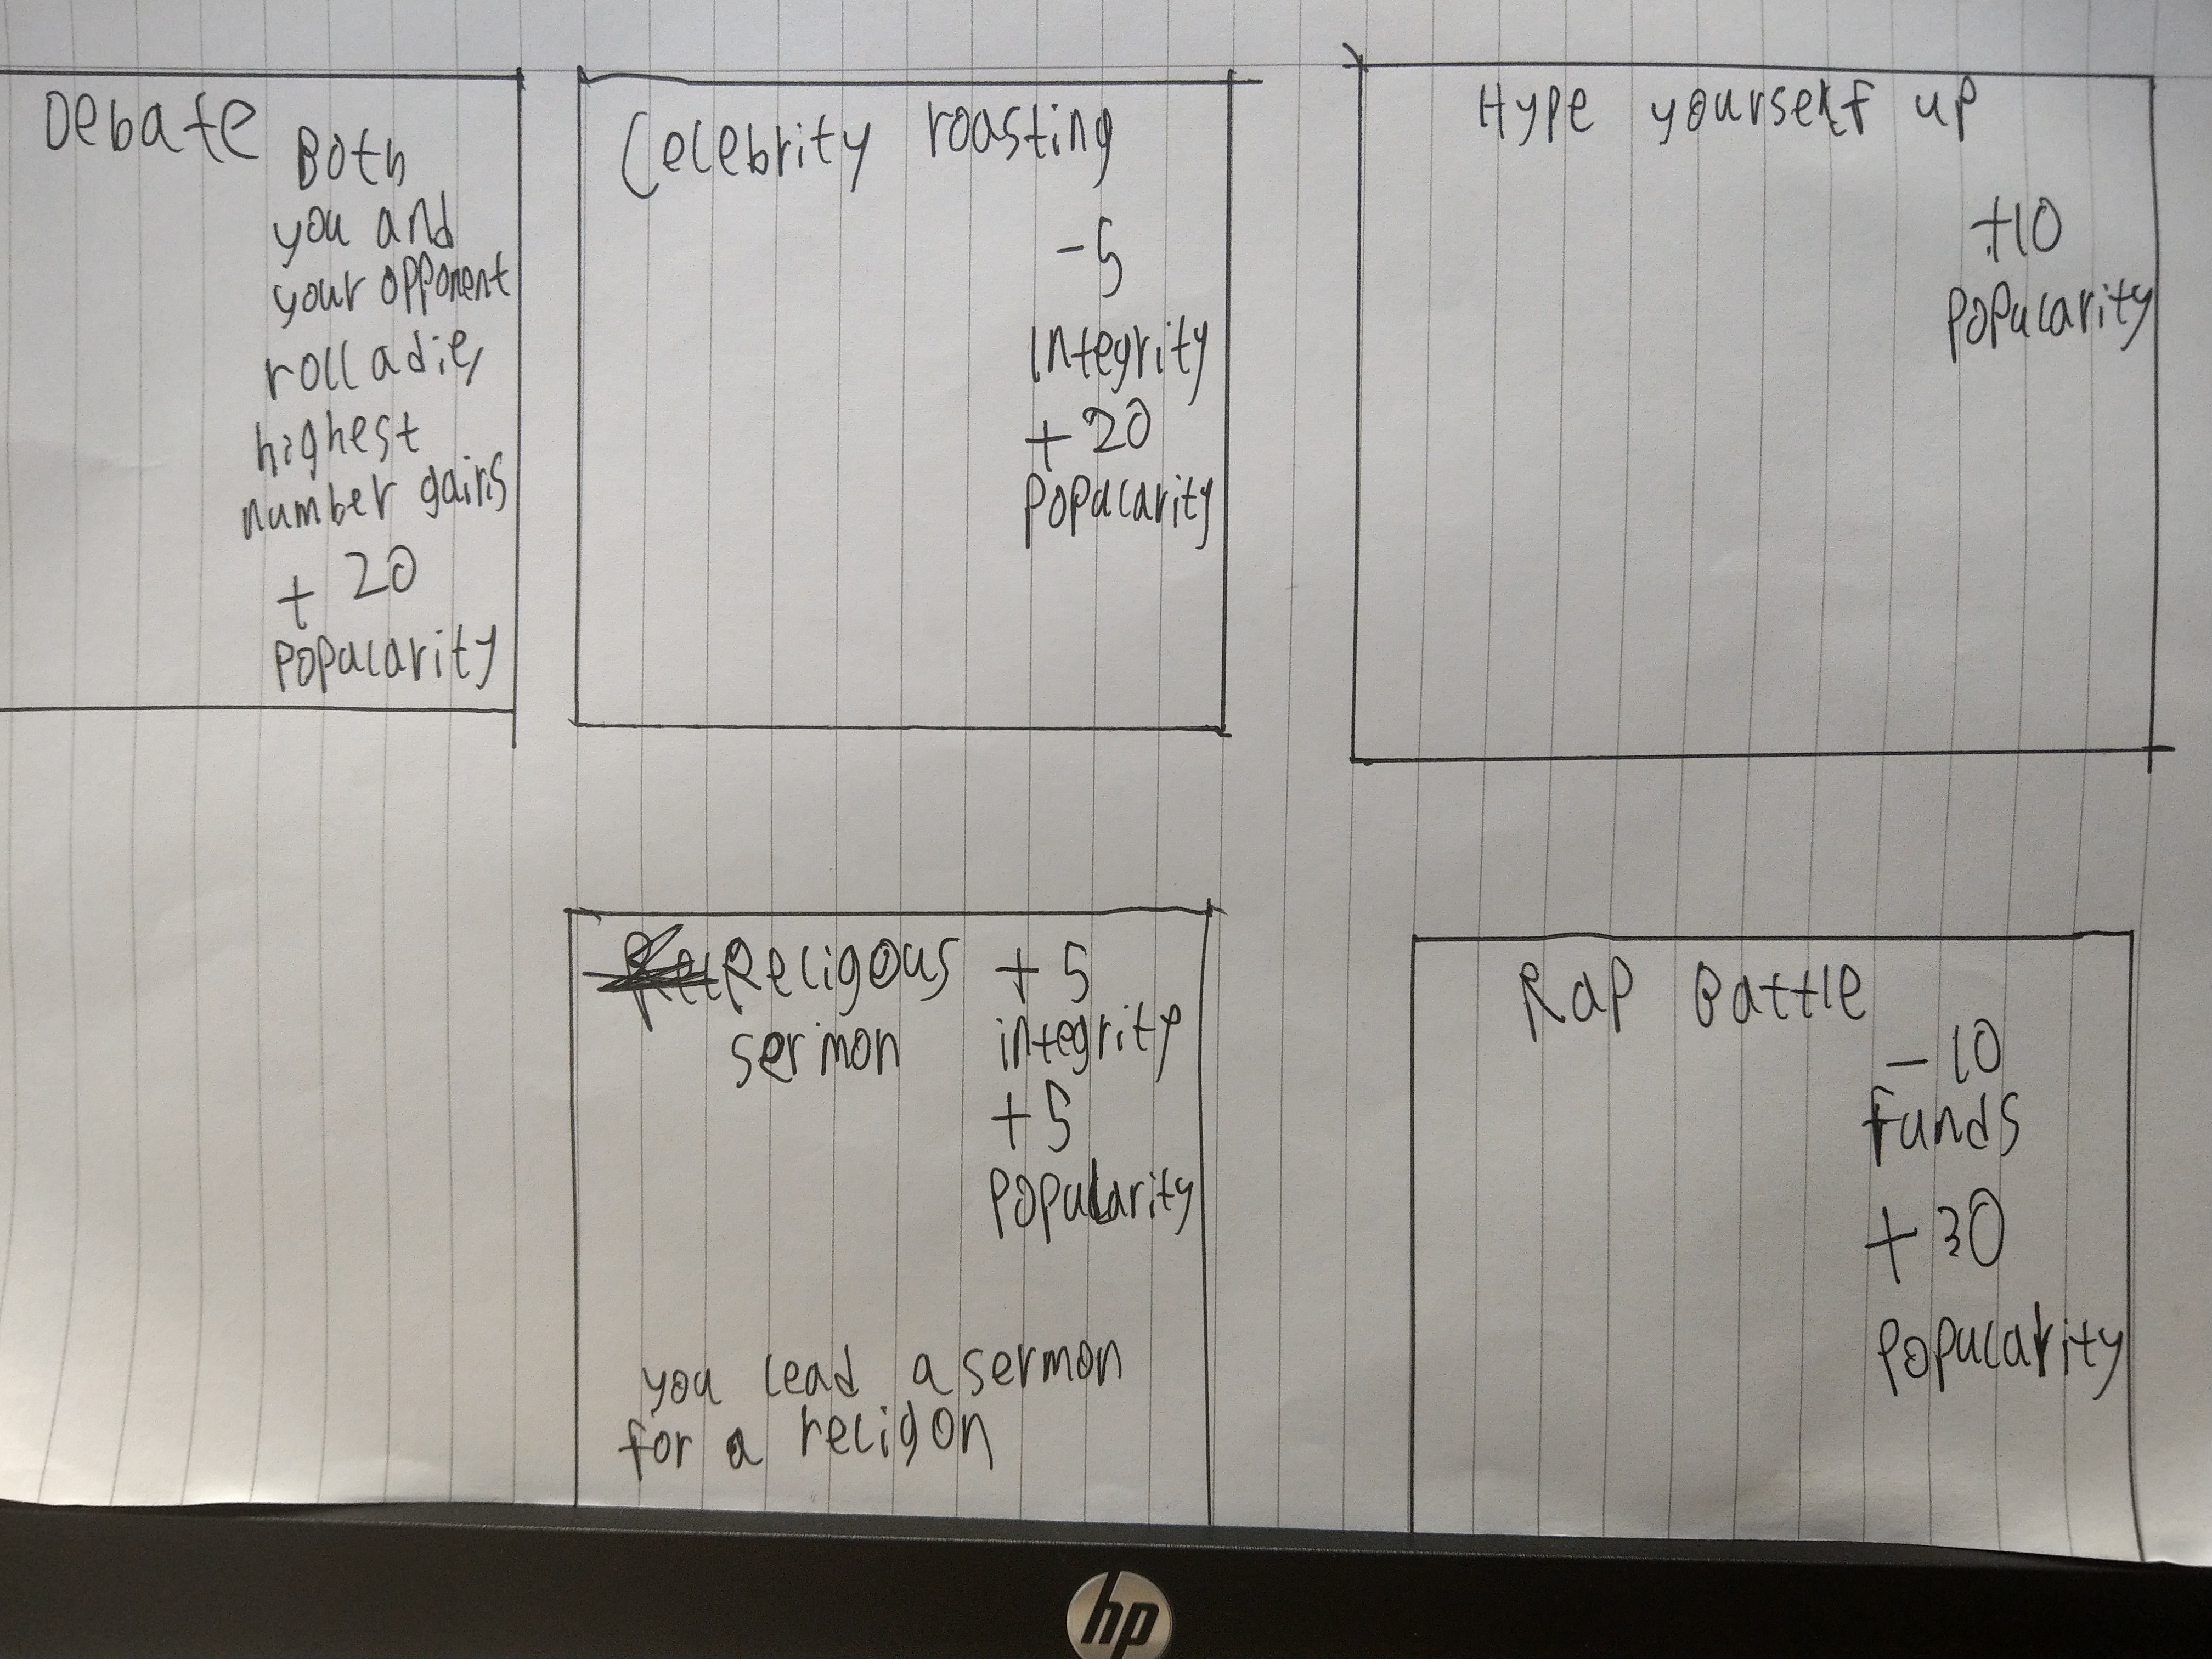 Debate
Both
you and
your opponent
roll a die,
highest
number gains
+ 20
popularity
Celebrity roasting
-5
integrity
+ 20
popularity
Hype yourself up
+10
popularity
Religous
sermon
+ 5
integrity
+ 5
popularity
you lead a sermon
for a religon
Rap Battle
- 10
funds
+ 30
popularity
hp